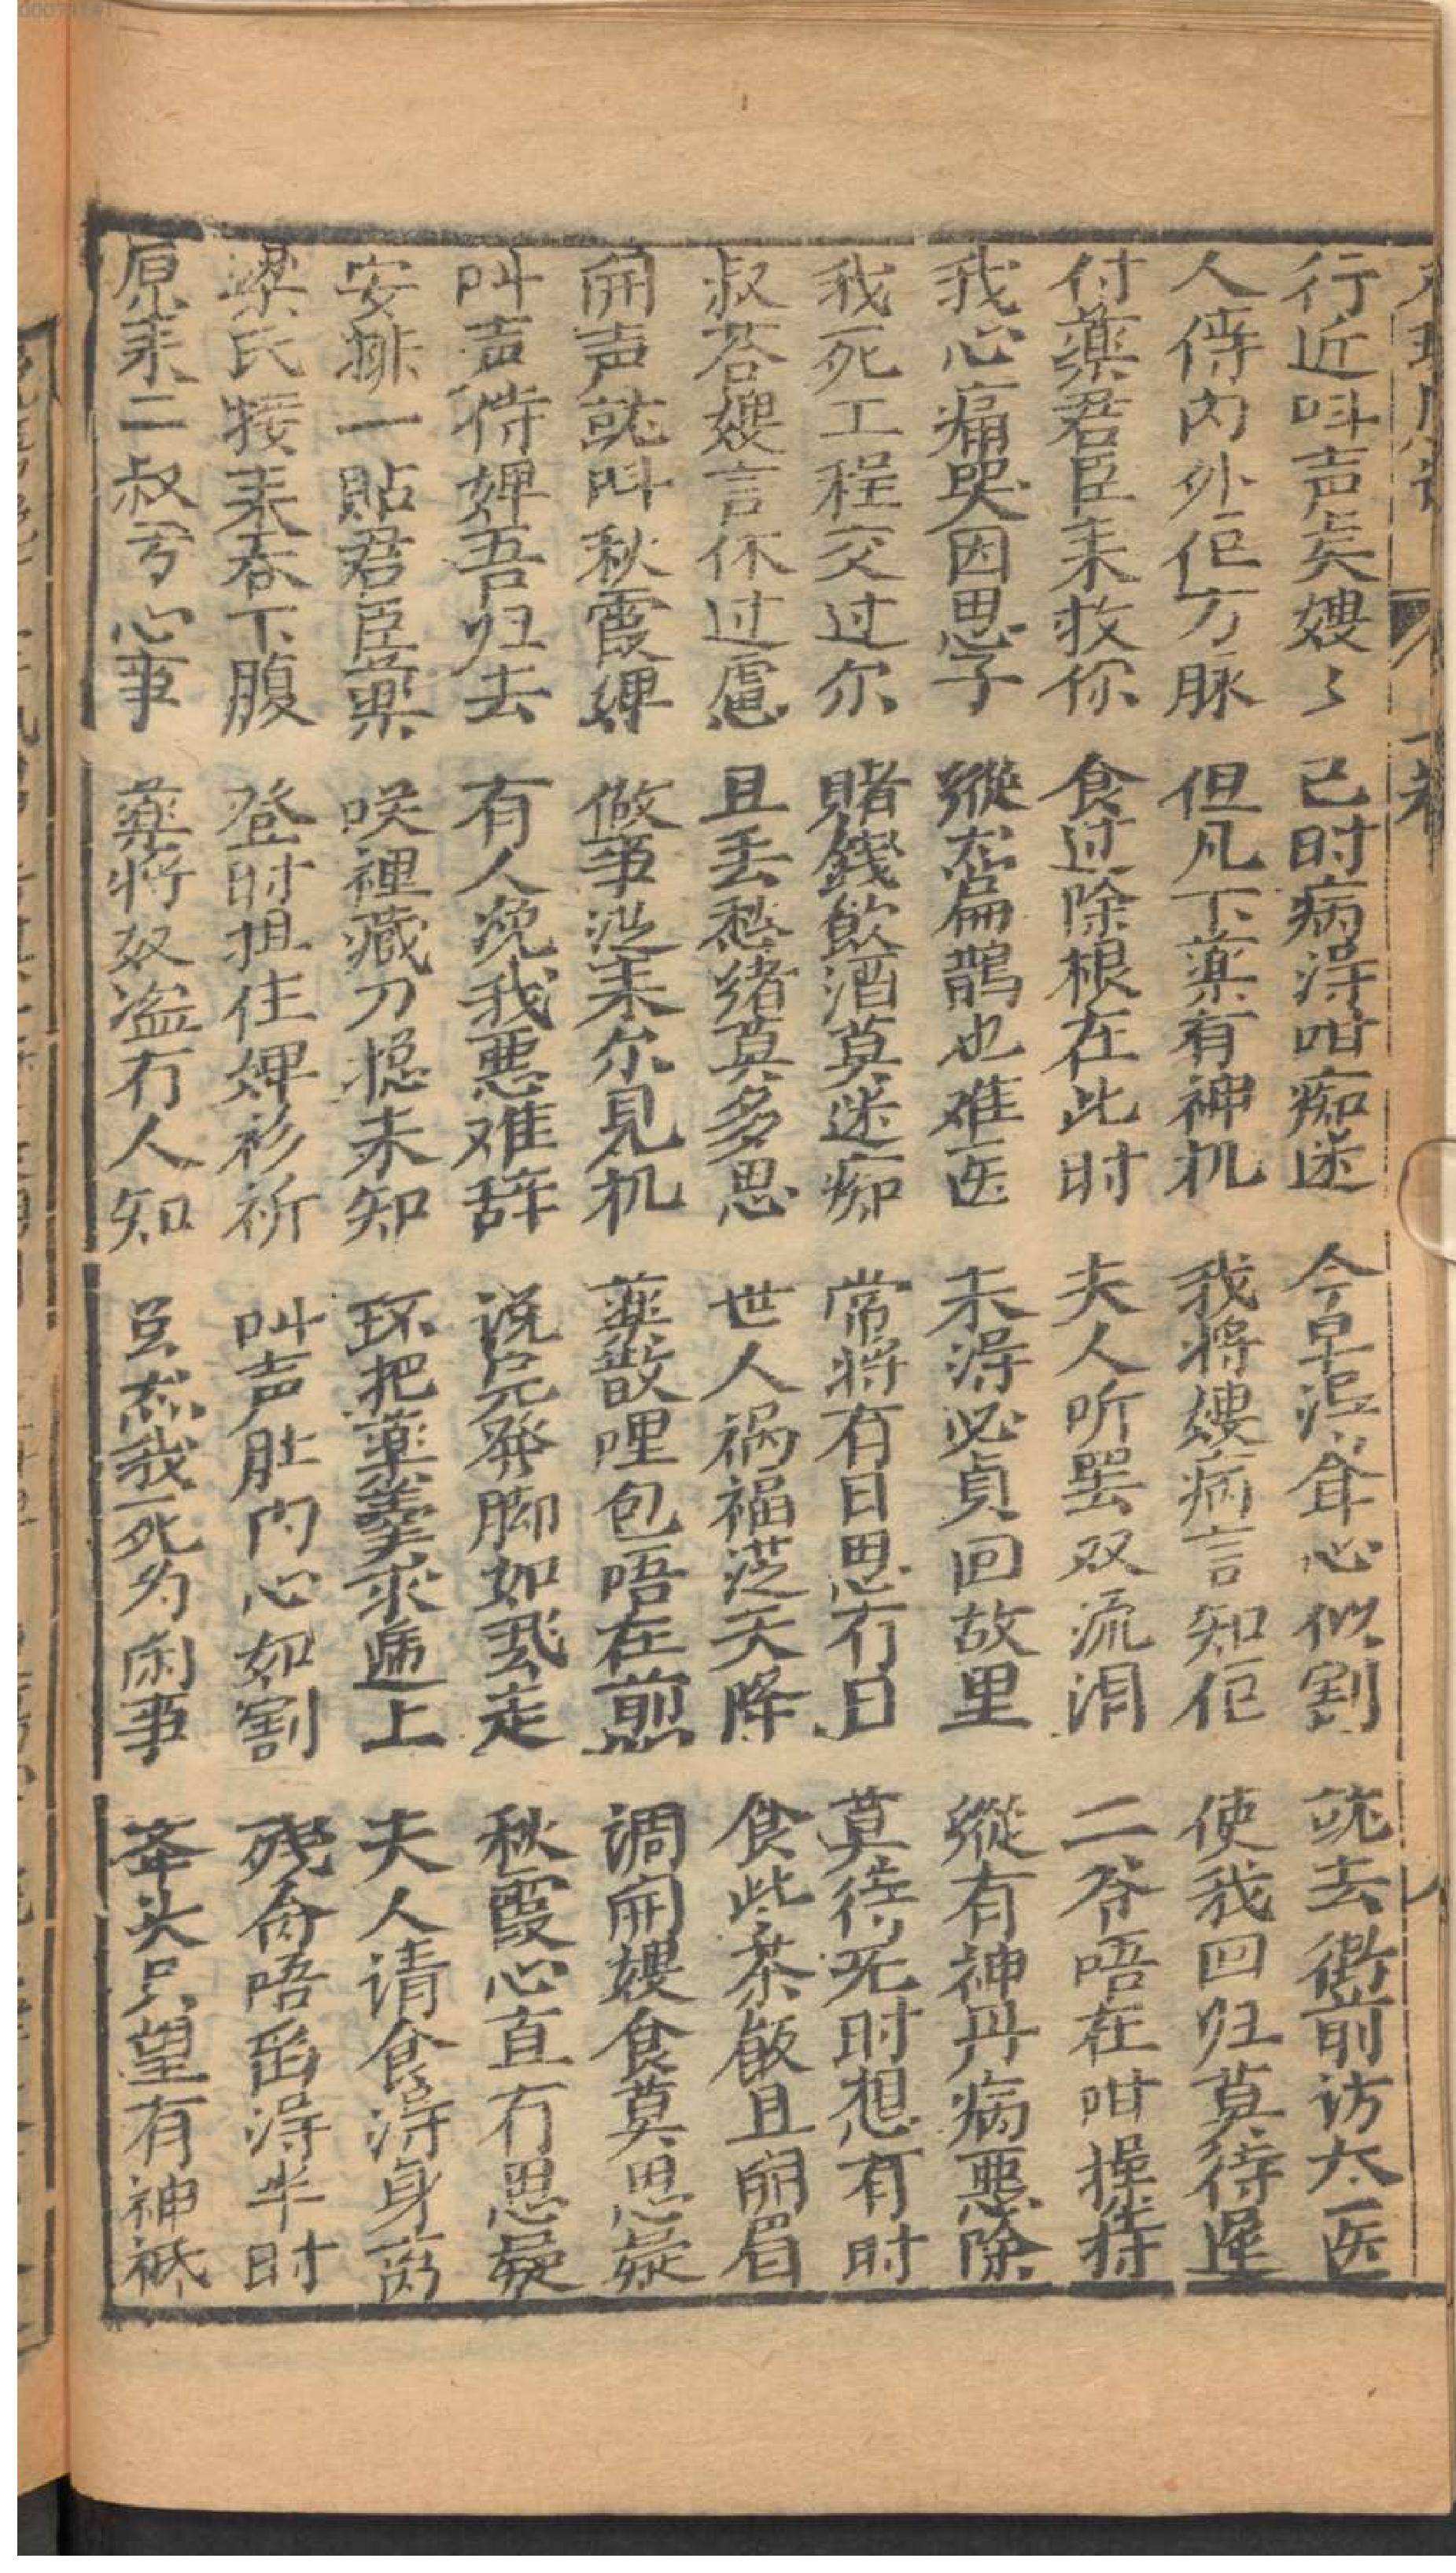 行近叫声矣嫂々 己时病淂咁痴迷 今早泣耸心似割 就去衙前访太医
人俦内外佢方脉 但凡下薬有神机 我将嫂病言知佢 使我回归莫待遅
付薬君臣耒救你 食过除根在此时 夫人听罢双流泪 二爷唔在咁操持
我心痛哭因思子 縱然扁鹊也难医 未淂必貞回故里 縱有神丹病悪除
我死工程交过尔 賭錢飲酒莫迷痴 常将有日思冇日 莫待无时想有时
叔荅嫂言休过慮 且丢愁绪莫多思 世人祸福从天降 食些茶飯且開眉
開声就叫秋霞婢 做事从耒尔見机 薬散哩包唔在煎 調開嫂食莫思疑
叫声侍婢吾归去 有人说我悪难辞 说完発脚如飛走 秋霞心直冇思疑
安排一貼君臣薬 咲裡藏刀揔未知 环把薬羹求逓上 夫人请食淂身
梁氏接耒吞下腹 登时扭住婢衫祈 叫声肚内心如割 残命唔留淂半时
原耒二叔兮心事 薬将奴盗冇人知 虽然我死为闲事 举头只望有神祗